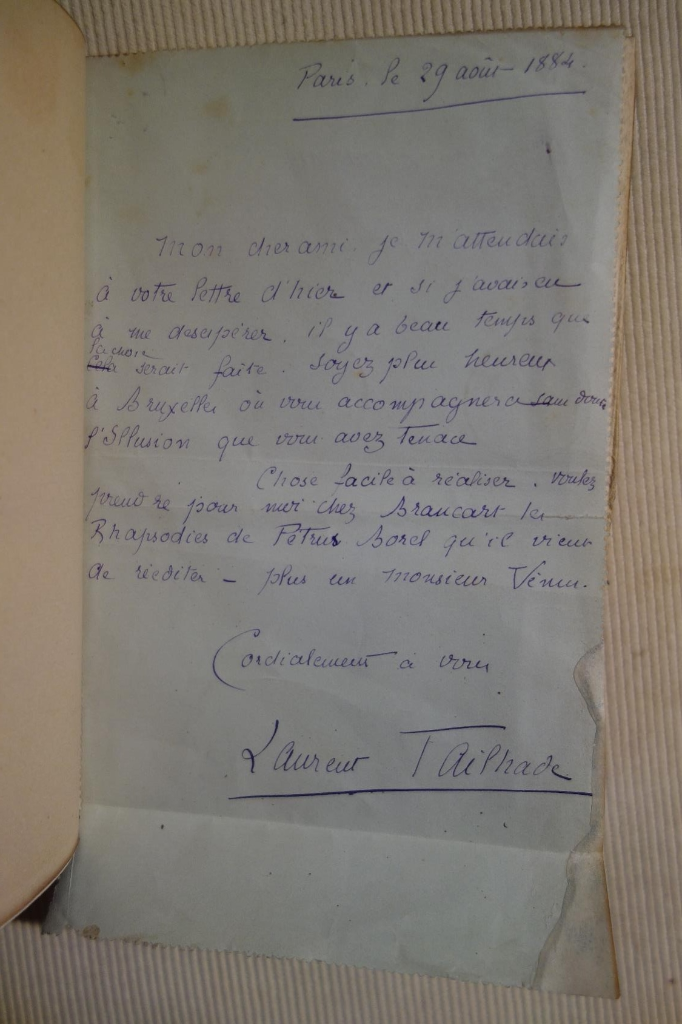 Paris. le 29 août 1884.
Mon cher ami. je m'attendais
à votre lettre d'hier et si j'avais eu
à me desespérer, il y a beau temps que
la chose
Cela serait faite. Soyez plus heureux
à Bruxelles où vous accompagnera sans doute
l'Illusion que vous avez tenace
Chose facile à réaliser. voulez
prendre pour moi chez Brancart les
Rhapsodies de Pétrus Borel qu'il vient
de rééditer – plus un Monsieur Vénus.
Cordialement à vous
Laurent Tailhade